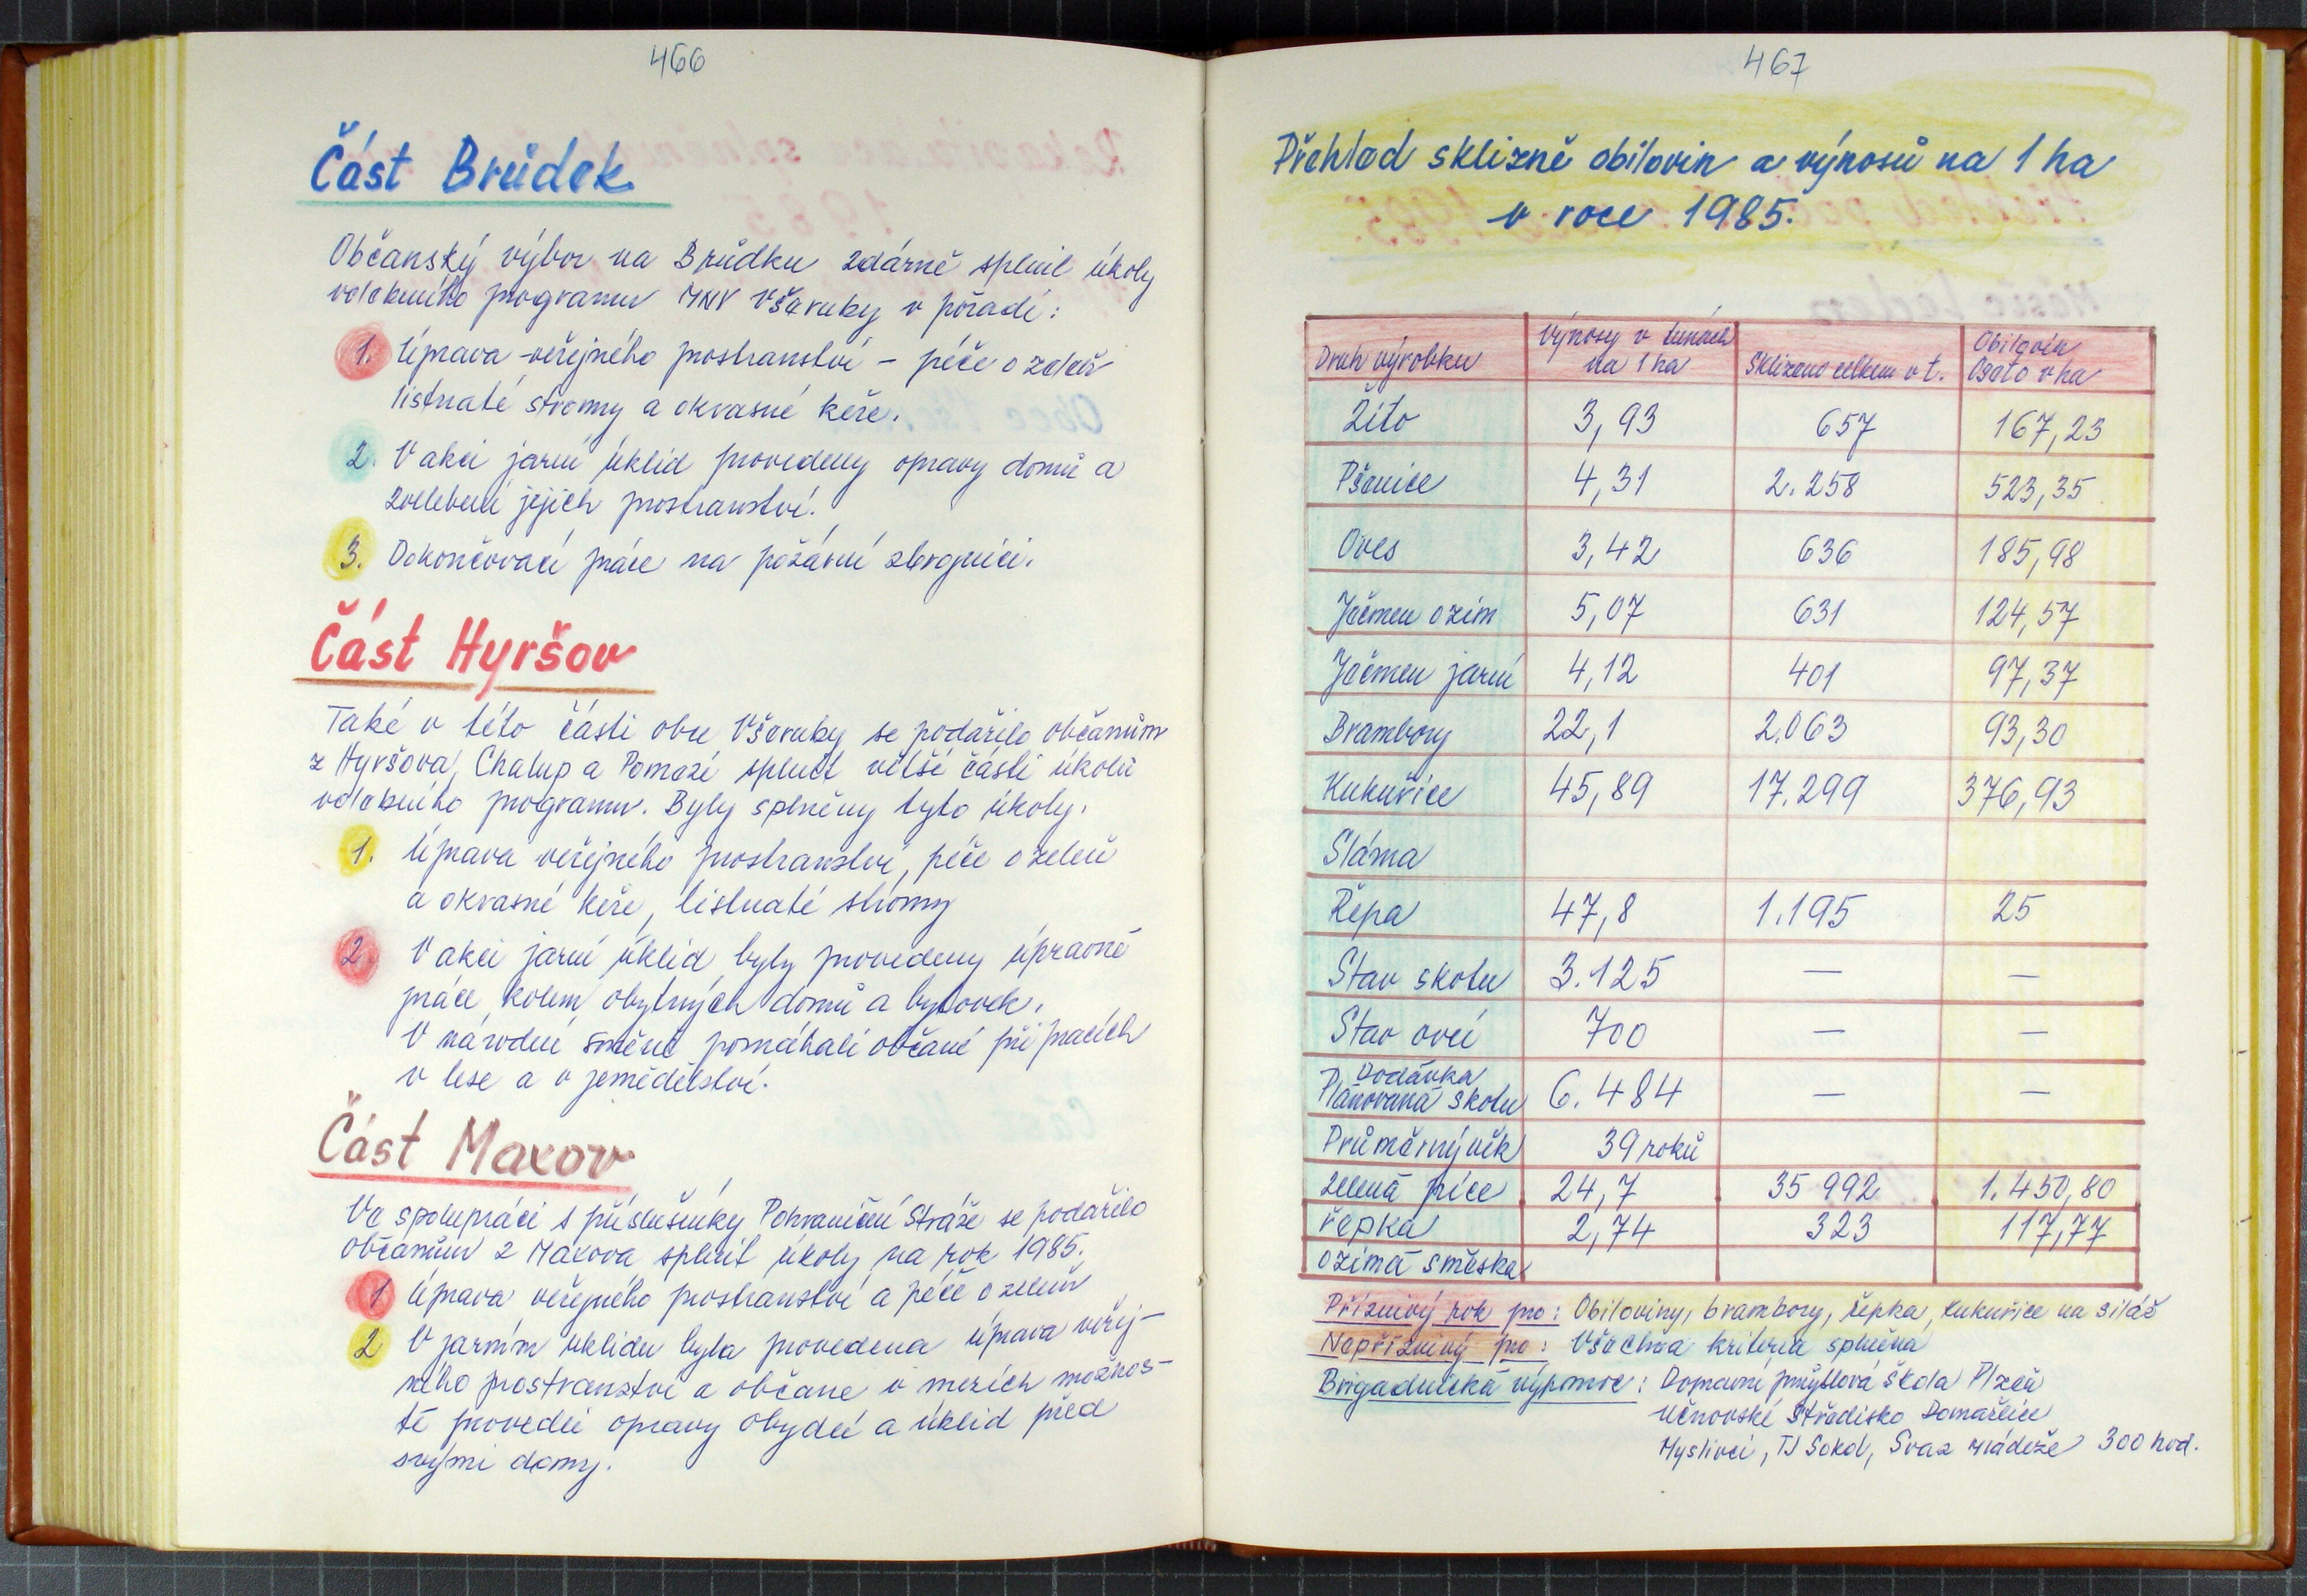 466
Část Brůdek
Občanský výbor na Brůdku zdárně splnil úkoly
volebního programu MNV Všeruby v pořadí:
1. Úprava veřejného prostranství – péče o zeleň
listnaté stromy a okrasné keře.
2. V akci jarní úklid provedeny opravy domů a
zvelebení jejich prostranství.
3. Dokončovací práce na požární zbrojnici.
Část Hyršov
Také v této části obce Všeruby se podařilo občanům
z Hyršova, Chalup a Pomezí splnit větší části úkolů
volebního programu. Byly splněny tyto úkoly.
1. Úprava veřejného prostranství, péče o zeleň
a okrasné keře, listnaté stromy
2. V akci jarní úklid byly provedeny úpravné
práce kolem obytných domů a bytovek.
V národní směně pomáhali občané při pracích
v lese a v zemědělství.
Část Maxov
Ve spolupráci s příslušníky Pohraniční Stráže se podařilo
občanům z Maxova splnit úkoly na rok 1985.
1 Úprava veřejného prostranství a péče o zeleň
2 V jarním úklidu byla provedena úprava veřej-
ného prostranství a občané v mezích možnos-
tí provedli opravy obydlí a úklid před
svými domy.
467
Přehled sklizně obilovin a výnosů na 1 ha
v roce 1985.
Druh výrobku Výnosy v tunách na 1 ha Sklizeno celkem v t. Obilovin Oseto v ha
Žito 3,93 657 167,23
Pšenice 4,31 2.258 523,35
Oves 3,42 636 185,98
Ječmen ozim 5,07 631 124,57
Ječmen jarní 4,12 401 97,37
Brambory 22,1 2.063 93,30
Kukuřice 45,89 17.299 376,93
Sláma
Řepa 47,8 1.195 25
Stav skotu 3.125 — —
Stav ovcí 700 — —
Dodávka Plánovaná skotu 6.484 — —
Průměrný věk 39 roků
zelená píce 24,7 35 992 1.450,80
řepka 2,74 323 117,77
ozimá směska
Příznivý rok pro: Obiloviny, brambory, řepka, kukuřice na siláž
Nepříznivý pro: Všechna kritéria splněna
Brigádnická výpomoc: Dopravní průmyslová škola Plzeň
Učňovské Středisko Domažlice
Myslivci, TJ Sokol, Svaz mládeže 300 hod.